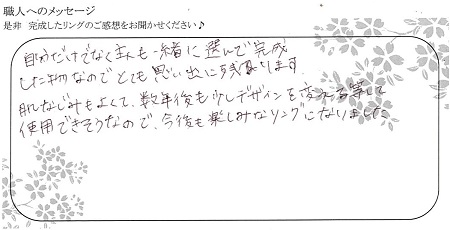 職人へのメッセージ
是非 完成したリングのご感想をお聞かせください♪
自分だけでなく主人も一緒に選んで完成
した物なのでとても思い出に残ります。
肌なじみもよくて、数年後も少しデザインを変える等して
使用できそうなので、今後も楽しみなリングになりました